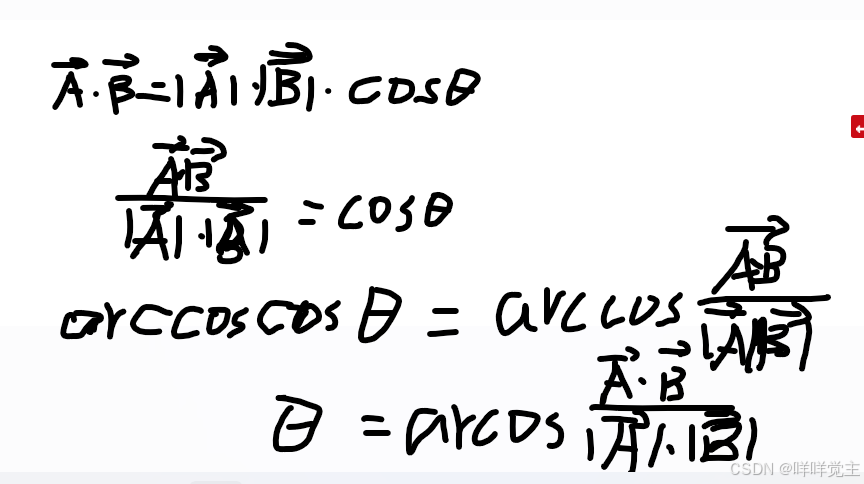 A⃗·B⃗=|A⃗|·|B⃗|·cosθ
A⃗B⃗/|A⃗|·|B⃗| = cosθ
arccoscosθ = arccos A⃗·B⃗/|A⃗||B⃗|
θ = arcos A⃗·B⃗/|A⃗|·|B⃗|
CSDN @咩咩觉主